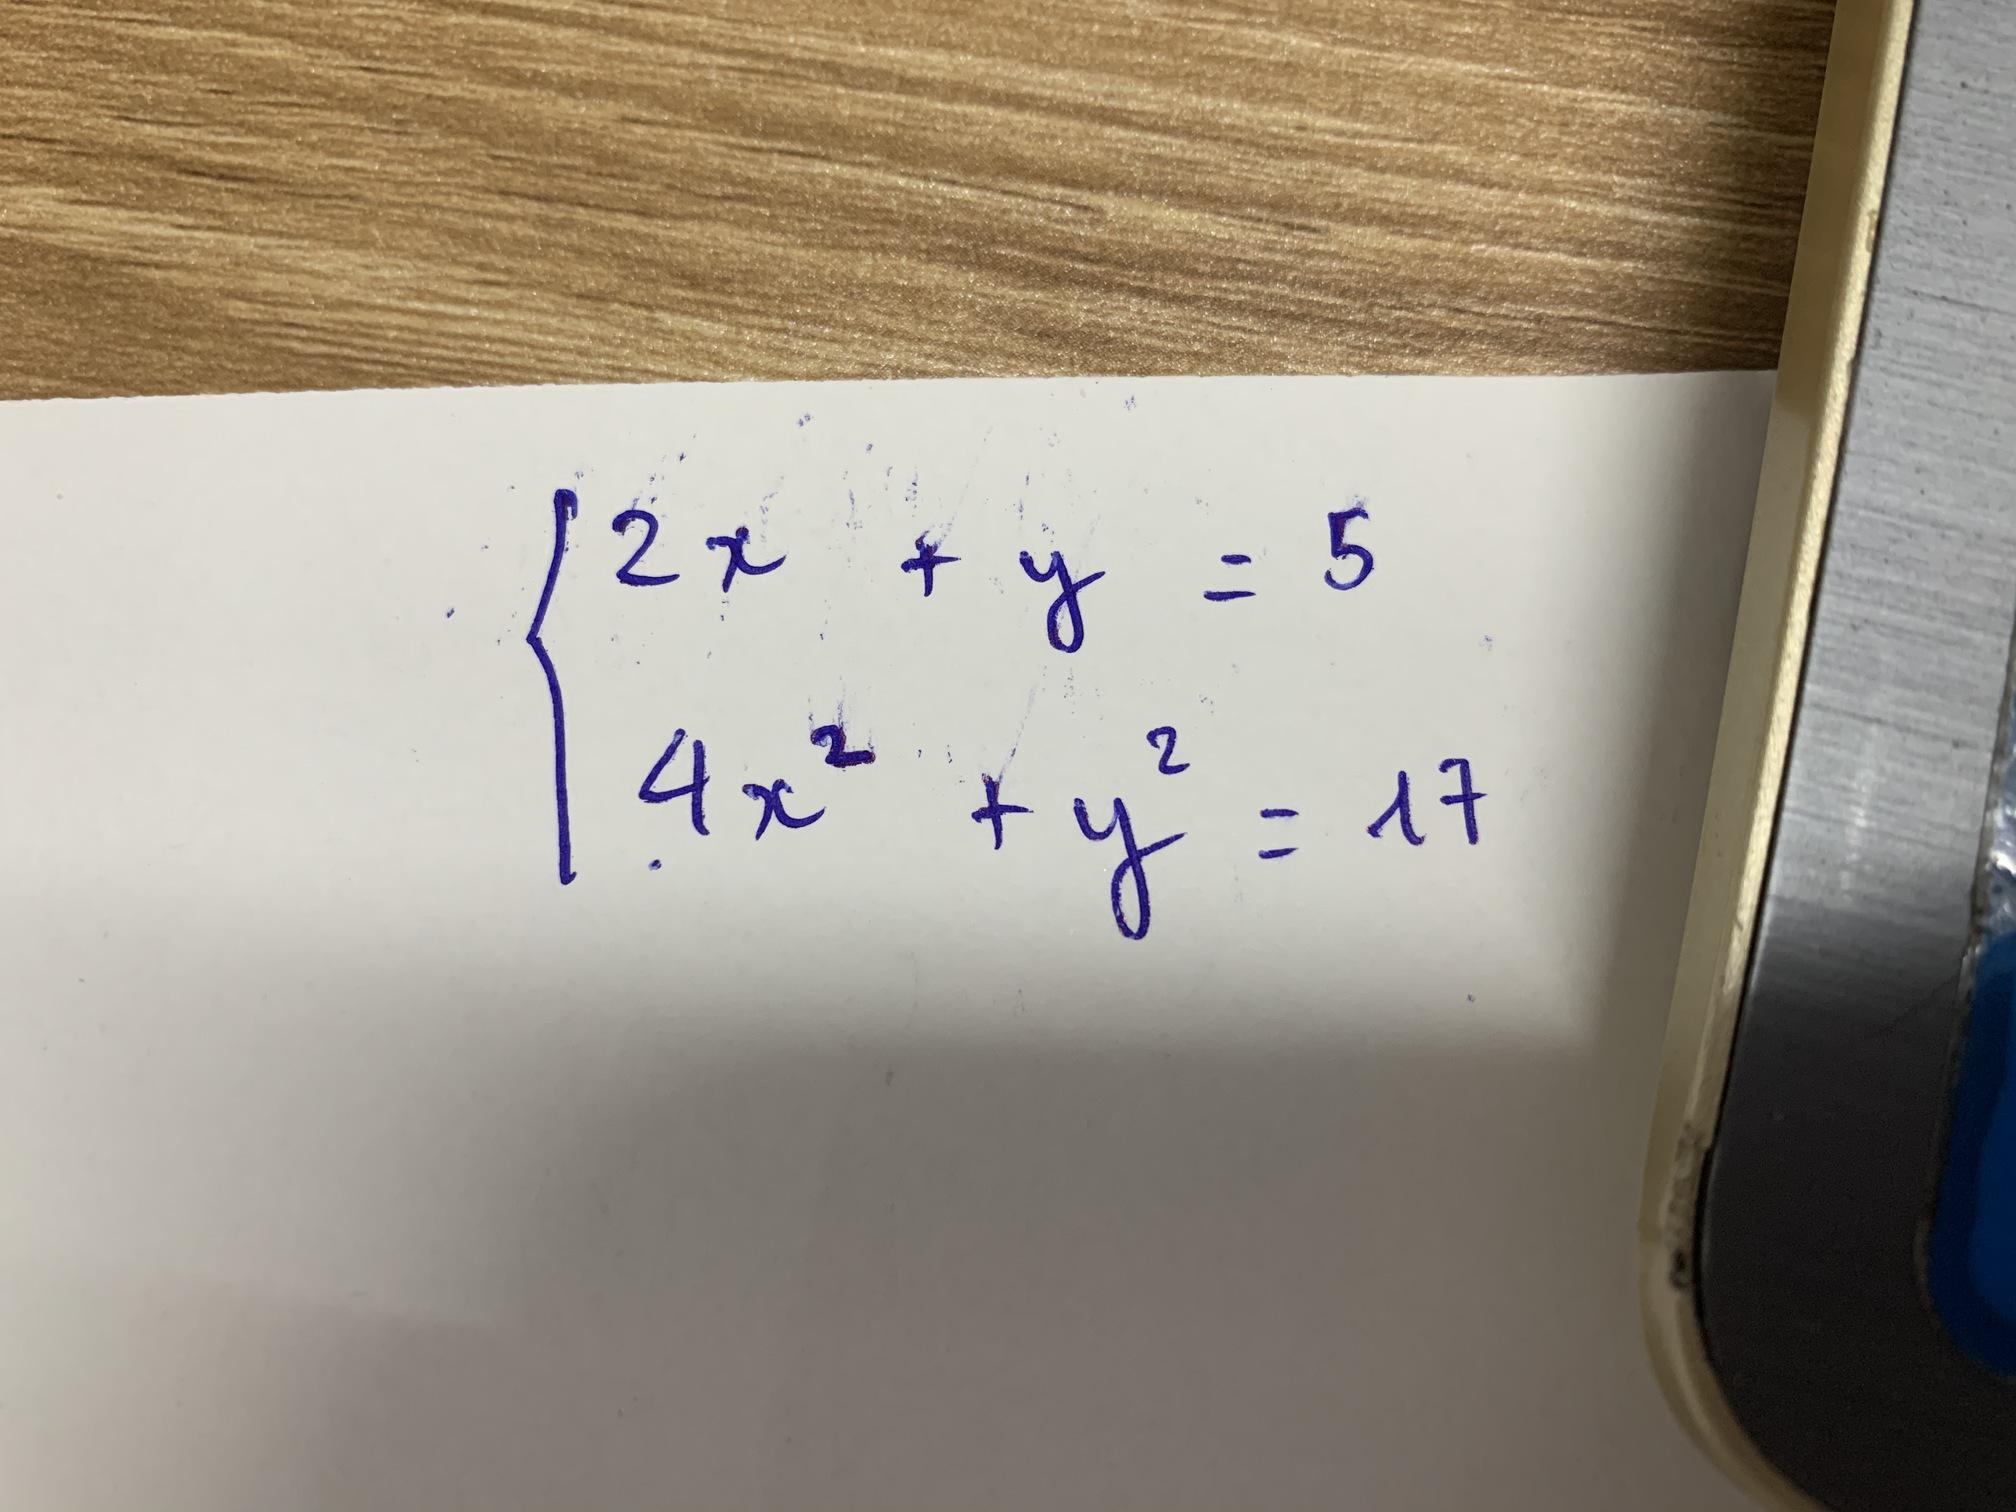 2x + y = 5
4x² + y² = 17